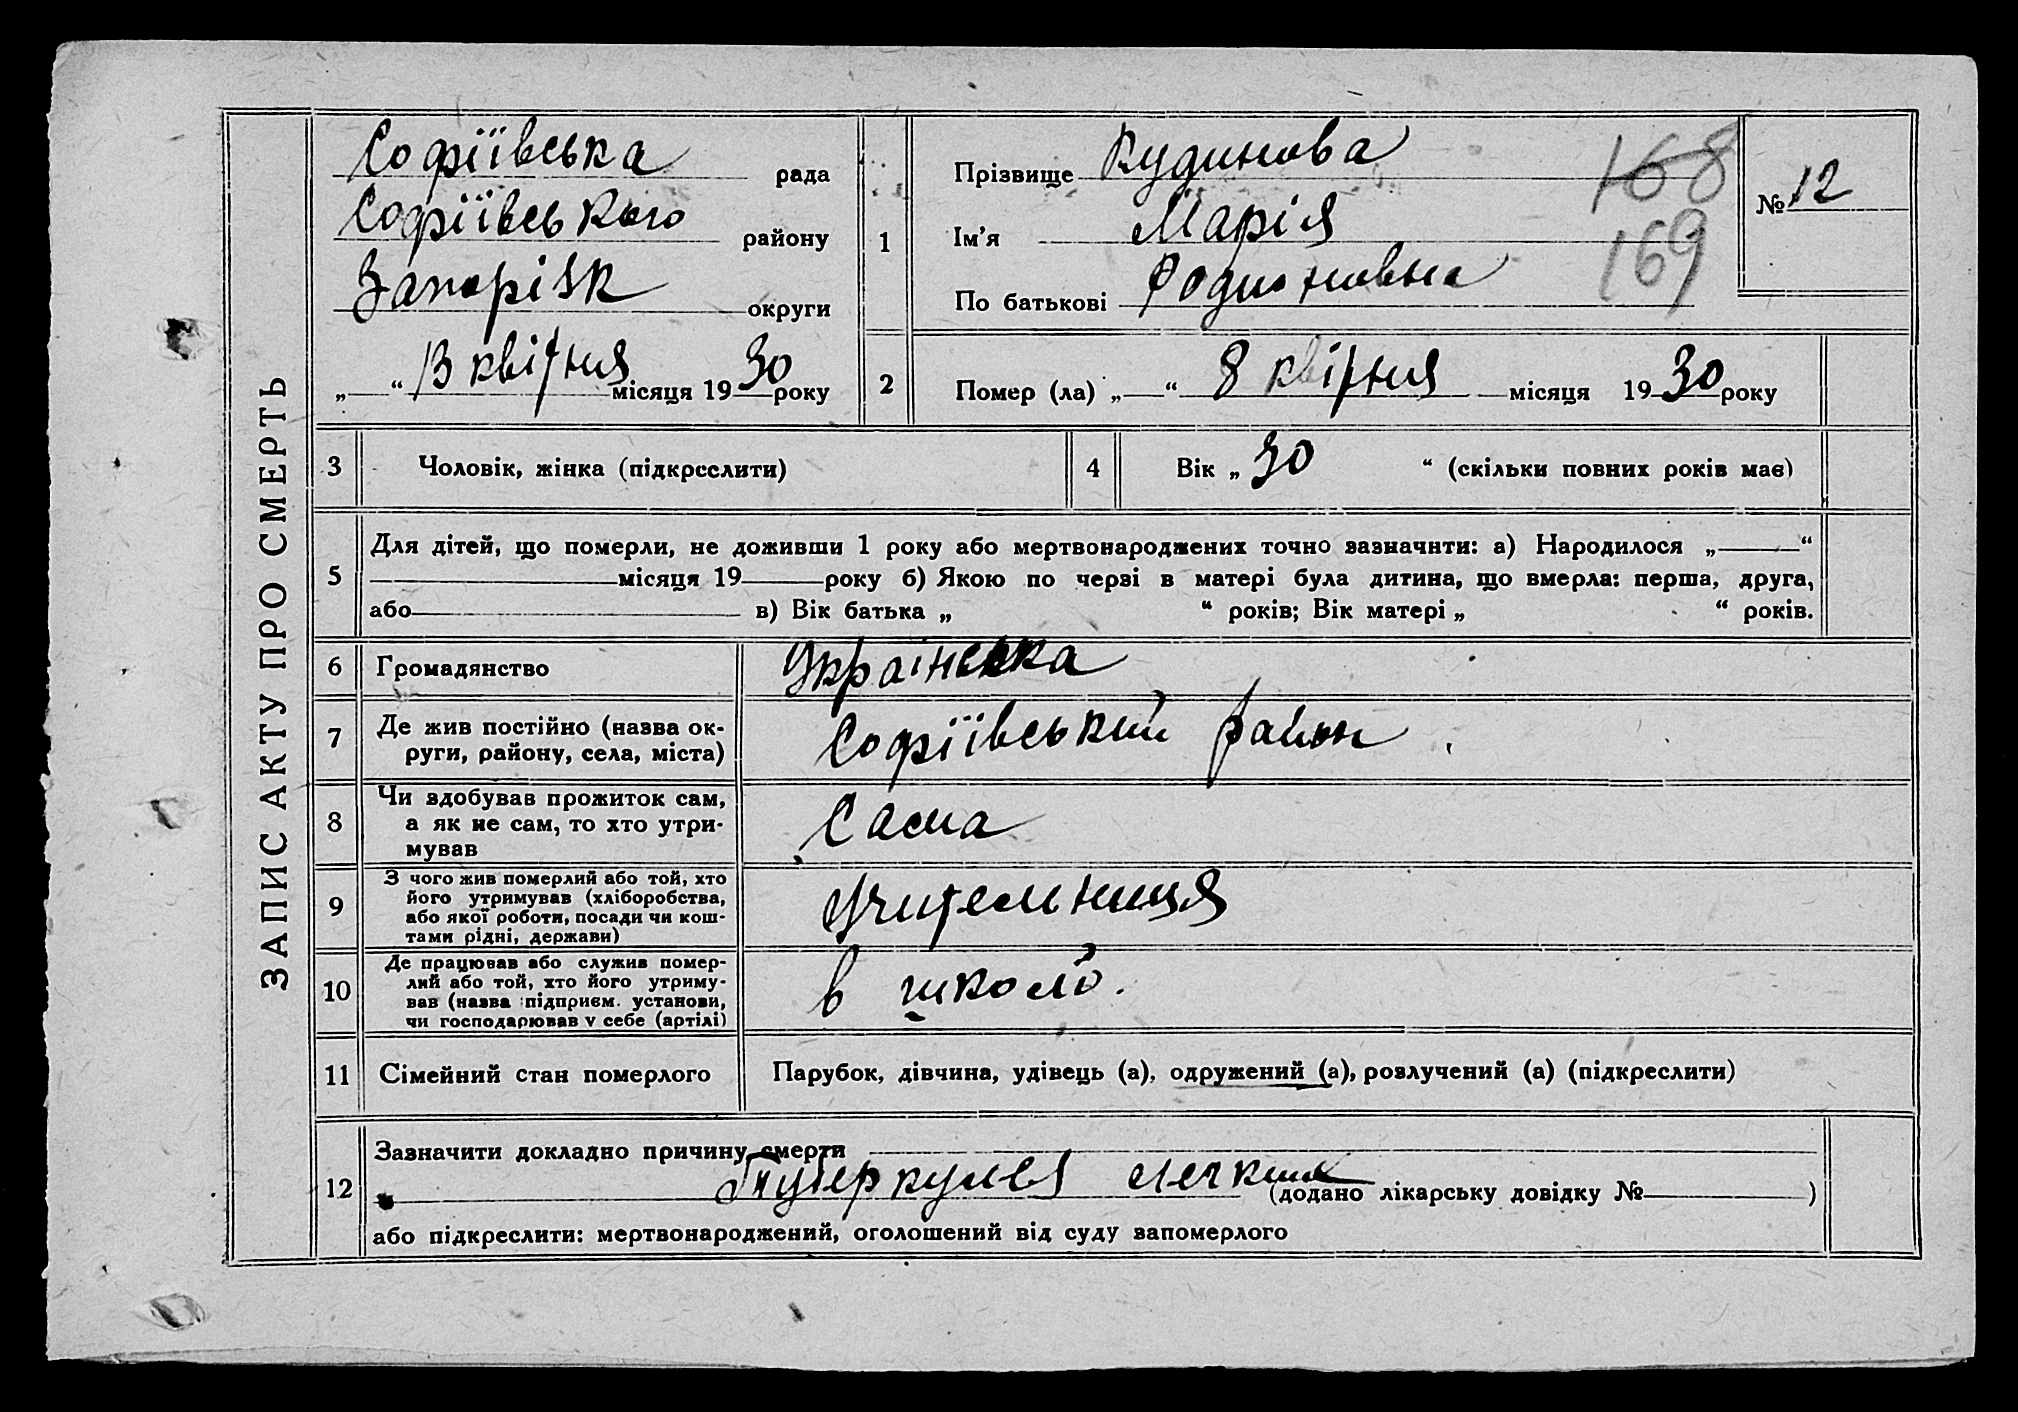 ЗАПИС АКТУ ПРО СМЕРТЬ
Софіївська рада
Софіївського району
Запоріжк округи
„ “ 13 квітня місяця 1930 року
1
Прізвище Кудинова
Ім’я Марія
По батькові Родионовна
168
169
№ 12
2 Помер (ла) „ “ 8 квітня місяця 1930 року
3 Чоловік, жінка (підкреслити)
4 Вік „ 30 “ (скільки повних років має)
5
Для дітей, що померли, не доживши 1 року або мертвонароджених точно зазначити: а) Народилося „ “
місяця 19 року б) Якою по черві в матері була дитина, що вмерла: перша, друга,
або в) Вік батька „ “ років; Вік матері „ “ років.
6 Громадянство Українська
7 Де жив постійно (назва ок-
руги, району, села, міста) Софіївський район
8 Чи здобував прожиток сам,
а як не сам, то хто утри-
мував Сама
9 З чого жив померлий або той, хто
його утримував (хліборобства,
або якої роботи, посади чи кош-
тами рідні, держави) Учительниця
10 Де працював або служив помер-
лий або той, хто його утриму-
вав (назва підприєм. установи,
чи господарював у себе (артілі) в школі.
11 Сімейний стан померлого Парубок, дівчина, удівець (а), одружений (а), розлучений (а) (підкреслити)
12
Зазначити докладно причину смерти
Туберкулез легких (додано лікарську довідку № )
або підкреслити: мертвонароджений, оголошений від суду запомерлого